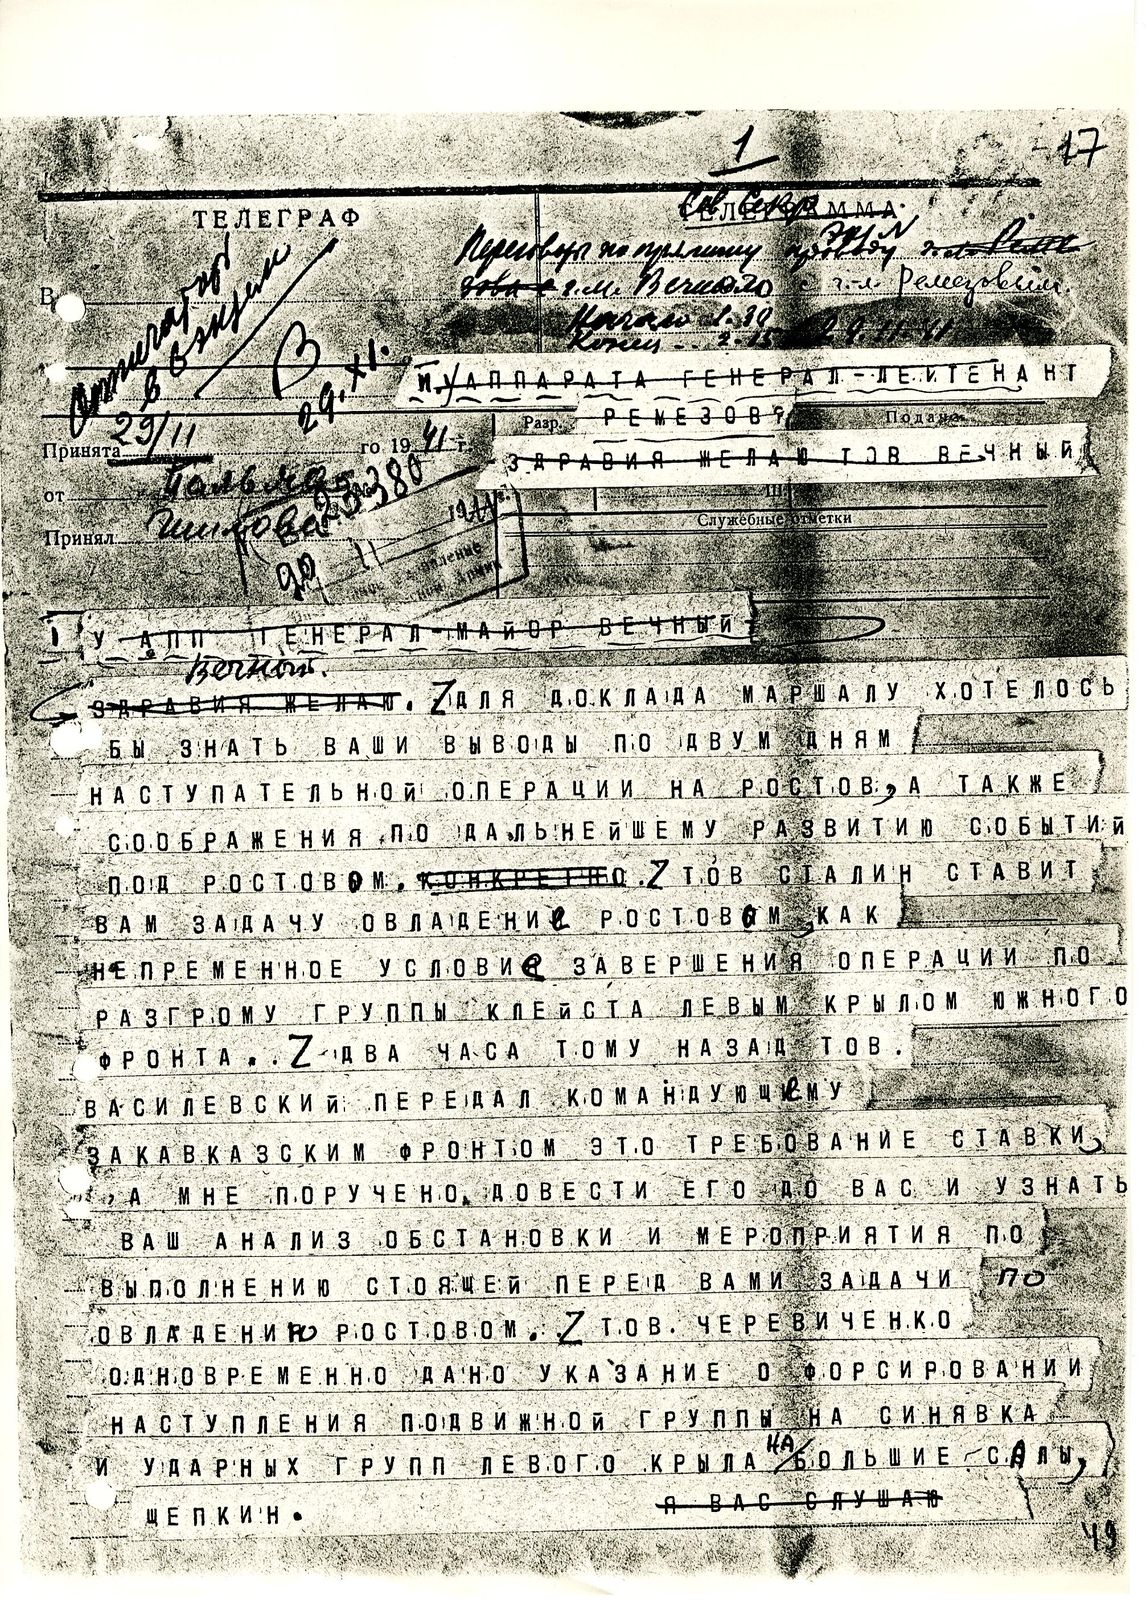 1
17
ТЕЛЕГРАФ
ТЕЛЕГРАММА
Переговоры по прямому проводу
г.м. Вечного с г-л Ремезовым.
Начало 1.30
Конец -- 2.15 29.11.41
В
29.XI.
И.У АППАРАТА ГЕНЕРАЛ-ЛЕЙТЕНАНТ
РЕМЕЗОВ
Разр. Подана
Принята 29/11 го 1941 г.
ЗДРАВИЯ ЖЕЛАЮ ТОВ ВЕЧНЫЙ
от
23380
Принял
Служебные отметки
1 У АПП ГЕНЕРАЛ-МАЙОР ВЕЧНЫЙ
Вечный.
ЗДРАВИЯ ЖЕЛАЮ. Z ДЛЯ ДОКЛАДА МАРШАЛУ ХОТЕЛОСЬ
БЫ ЗНАТЬ ВАШИ ВЫВОДЫ ПО ДВУМ ДНЯМ
НАСТУПАТЕЛЬНОЙ ОПЕРАЦИИ НА РОСТОВ, А ТАКЖЕ
СООБРАЖЕНИЯ ПО ДАЛЬНЕЙШЕМУ РАЗВИТИЮ СОБЫТИЙ
ПОД РОСТОВОМ. КОНКРЕТНО. Z ТОВ СТАЛИН СТАВИТ
ВАМ ЗАДАЧУ ОВЛАДЕНИЕ РОСТОВОМ, КАК
НЕПРЕМЕННОЕ УСЛОВИЕ ЗАВЕРШЕНИЯ ОПЕРАЦИИ ПО
РАЗГРОМУ ГРУППЫ КЛЕЙСТА ЛЕВЫМ КРЫЛОМ ЮЖНОГО
ФРОНТА.. Z ДВА ЧАСА ТОМУ НАЗАД ТОВ.
ВАСИЛЕВСКИЙ ПЕРЕДАЛ КОМАНДУЮЩЕМУ
ЗАКАВКАЗСКИМ ФРОНТОМ ЭТО ТРЕБОВАНИЕ СТАВКИ,
,А МНЕ ПОРУЧЕНО ДОВЕСТИ ЕГО ДО ВАС И УЗНАТЬ
ВАШ АНАЛИЗ ОБСТАНОВКИ И МЕРОПРИЯТИЯ ПО
ВЫПОЛНЕНИЮ СТОЯЩЕЙ ПЕРЕД ВАМИ ЗАДАЧИ ПО
ОВЛАДЕНИЮ РОСТОВОМ. Z ТОВ. ЧЕРЕВИЧЕНКО
ОДНОВРЕМЕННО ДАНО УКАЗАНИЕ О ФОРСИРОВАНИИ
НАСТУПЛЕНИЯ ПОДВИЖНОЙ ГРУППЫ НА СИНЯВКА
И УДАРНЫХ ГРУПП ЛЕВОГО КРЫЛА НА БОЛЬШИЕ САЛЫ,
ЩЕПКИН. Я ВАС СЛУШАЮ
49